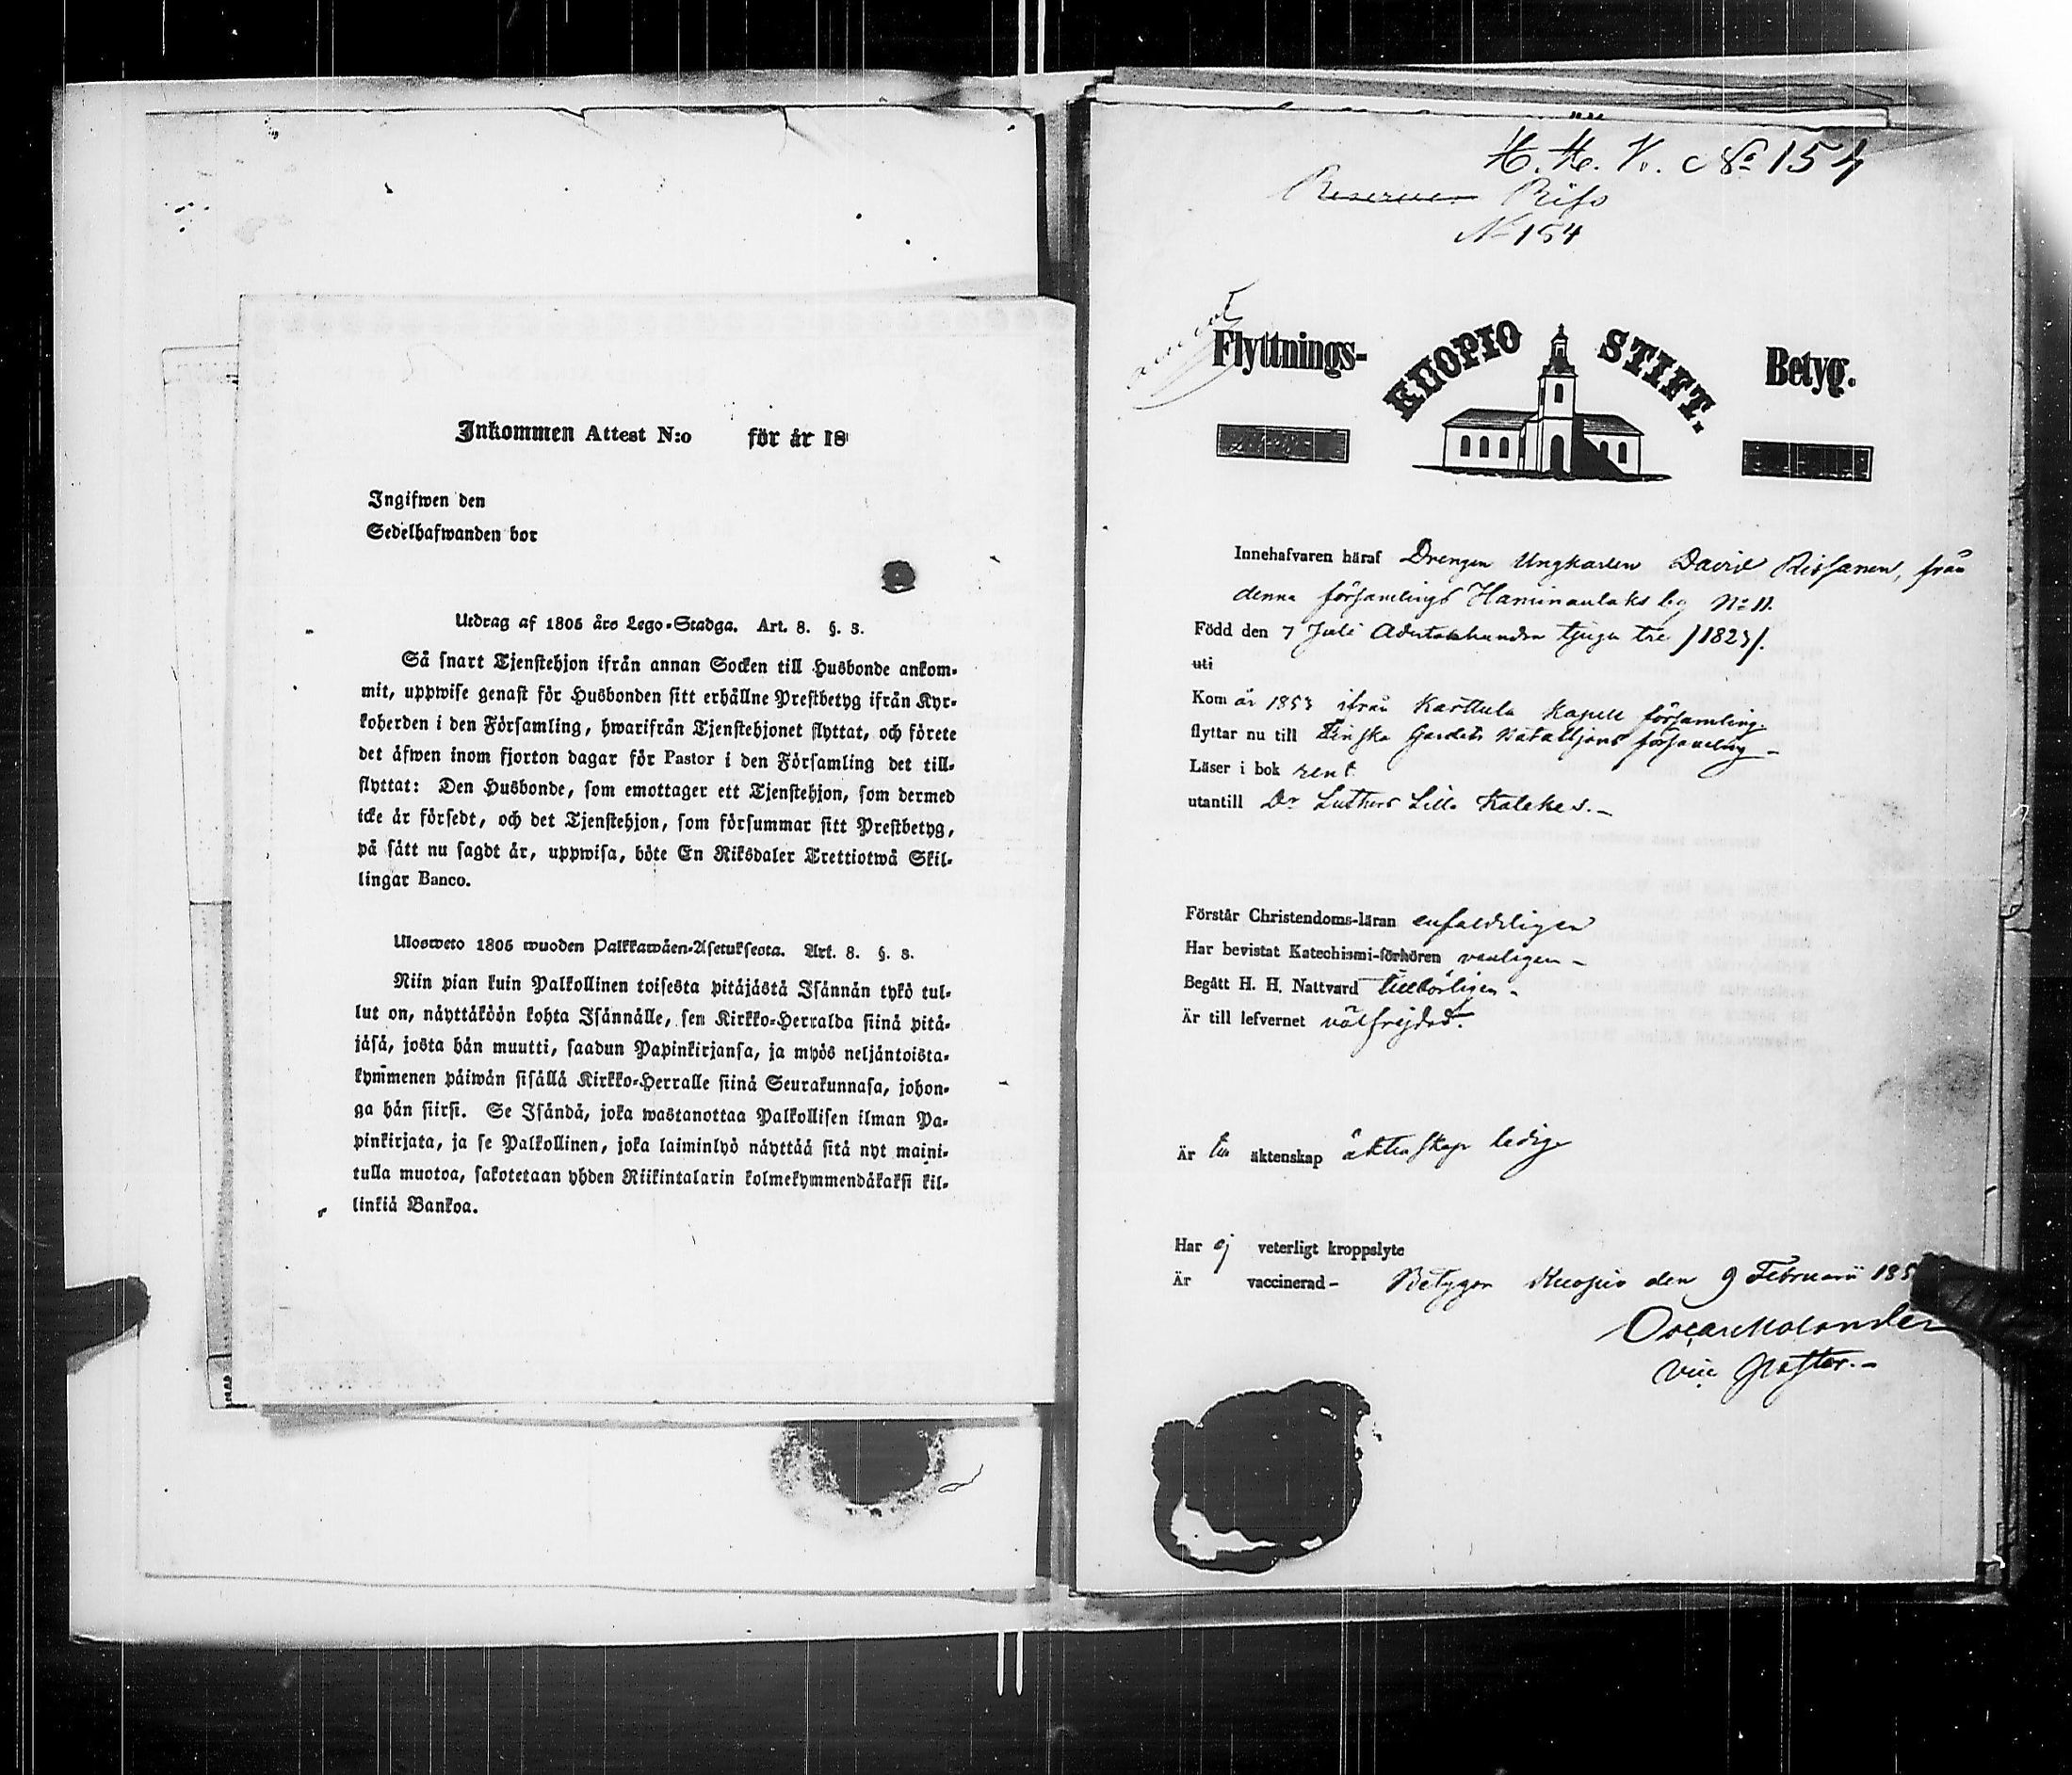 Inkommen Attest N:o för år 18
Ingifwen den
Sedelhafwanden bor
Utdrag af 1805 års Lego-Stadga. Art. 8. §. 3.
Så snart Tjenstehjon ifrån annan Socken till Husbonde ankom-
mit, uppwise genast för Husbonden sitt erhållne Prestbetyg ifrån Kyr-
koherden i den Församling, hwarifrån Tjenstehjonet flyttat, och förete
det äfwen inom fjorton dagar för Pastor i den Församling det till-
flyttat: Den Husbonde, som emottager ett Tjenstehjon, som dermed
icke är försedt, och det Tjenstehjon, som försummar sitt Prestbetyg,
på sätt nu sagdt är, uppwisa, böte En Riksdaler Trettiotwå Skil-
lingar Banco.
Ulosweto 1805 wuoden Palkkawäen-Asetuksesta. Art. 8. §. 3.
Niin pian kuin Palkollinen toisesta pitäjästä Isännän tykö tul-
lut on, näyttäköön kohta Isännälle, sen Kirkko-Herralda siinä pitä-
jäsä, josta hän muutti, saadun Papinkirjansa, ja myös neljäntoista-
kymmenen päiwän sisällä Kirkko-Herralle siinä Seurakunnasa, johon-
ga hän siirsi. Se Isändä, joka wastanottaa Palkollisen ilman Pa-
pinkirjata, ja se Palkollinen, joka laiminlyö näyttää sitä nyt maini-
tulla muotoa, sakotetaan yhden Riikintalarin kolmekymmendäkaksi kil-
linkiä Bankoa.
H. H. V. No 154
Reserven Risp
No 154
Flyttnings- KUOPIO STIFT. Betyg.
Innehafvaren häraf Drengen Ungkarlen David Rissanen, från
denna församlings Haminanlaks by No 11.
Född den 7 Juli Adertonhundra tjugu tre /1823/.
uti
Kom år 1853 ifrån Karttula Kapell församling.
flyttar nu till Finska Gardets Bataljons församling -
Läser i bok rent
utantill Dr Luthers Lilla Kateches. -
Förstår Christendoms-läran enfaldeligen
Har bevistat Katechismi-förhören vanligen -
Begått H. H. Nattvard tillbörligen -
Är till lefvernet välfrejdad.
Är till äktenskap äktenskap ledig
Har ej veterligt kroppslyte
Är vaccinerad - Betygar Kuopio den 9 Februarii 185
Oscar Molander
Vice Pastor. -